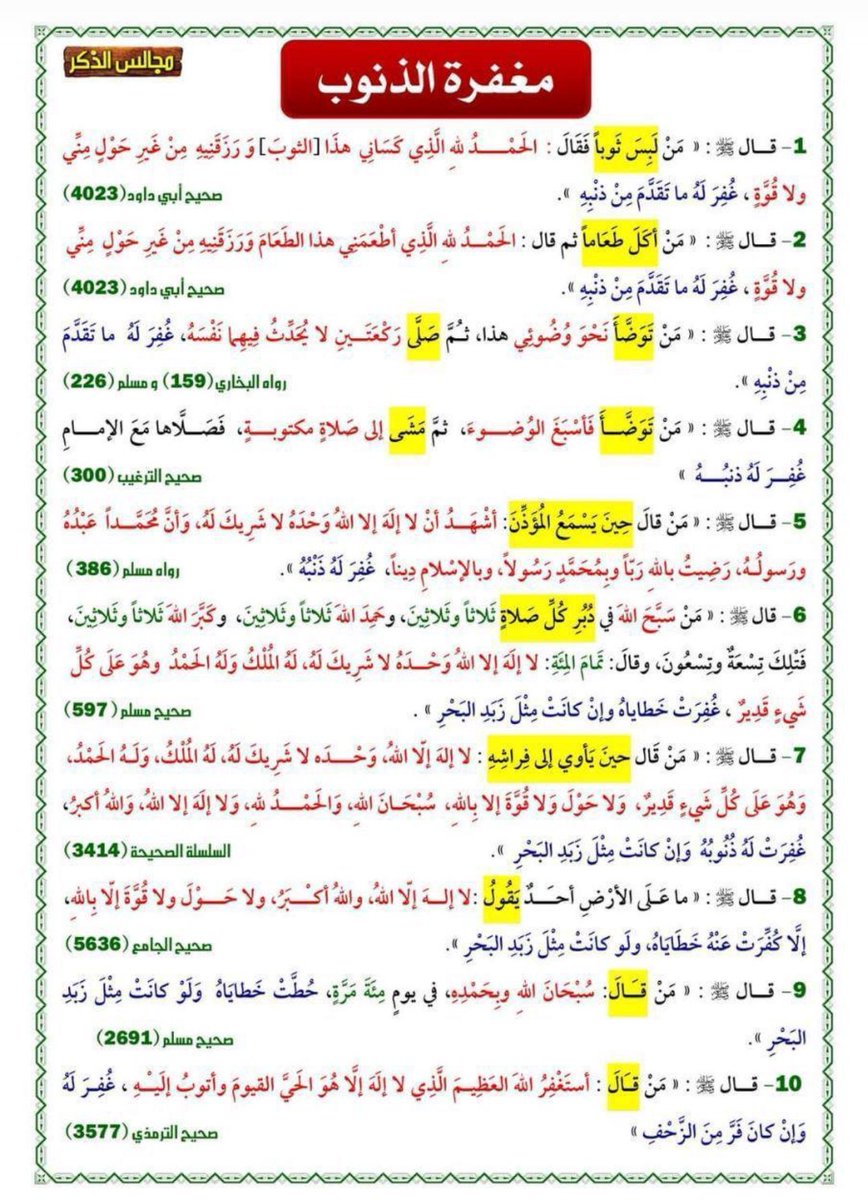 مجالس الذكر
مغفرة الذنوب
1- قـــال ﷺ : « مَنْ لَبِسَ ثَوباً فَقَالَ : الحَمْـــــدُ للهِ الَّذِي كَسَانِي هذَا [الثوبَ] وَ رَزَقَنِيهِ مِنْ غَيرِ حَوْلٍ مِنِّي
ولا قُوَّةٍ ، غُفِرَ لَهُ ما تَقَدَّمَ مِنْ ذنْبِهِ ». صحيح أبي داود (4023)
2- قـــال ﷺ : « مَنْ أكَلَ طَعَاماً ثم قال : الحَمْـــــدُ للهِ الَّذِي أطْعَمَنِي هذا الطَعَامَ وَرَزَقَنِيهِ مِنْ غَيرِ حَوْلٍ مِنِّي
ولا قُوَّةٍ ، غُفِرَ لَهُ ما تَقَدَّمَ مِنْ ذنْبِهِ ». صحيح أبي داود (4023)
3- قـــال ﷺ : « مَنْ تَوَضَّأَ نَحْوَ وُضُوئِي هذا، ثـُمَّ صَلَّى رَكْعَتَـــينِ لا يُحَدِّثُ فِيهِما نَفْسَهُ، غُفِرَ لَهُ ما تَقَدَّمَ
مِنْ ذنْبِهِ ». رواه البخاري (159) و مسلم (226)
4- قـــال ﷺ : « مَنْ تَوَضَّـــأَ فَأسْبَغَ الوُضـــوءَ، ثمَّ مَشَى إلى صَلاةٍ مكتوبـــةٍ، فَصَـلَّاها مَعَ الإمـــامِ
غُفِـــرَ لَهُ ذنبُـــهُ » صحيح الترغيب (300)
5- قـــال ﷺ : « مَن قالَ حِينَ يَسْمَعُ المُؤَذِّنَ: أشْهَـــدُ أنْ لا إلَهَ إلا اللهُ وَحْدَهُ لا شَرِيكَ لَهُ، وَأنَّ مُحَمَّـــداً عَبْدُهُ
ورَسولُـهُ، رَضِيتُ باللهِ رَبّاً وبِمُحَمَّدٍ رَسُولاً، وبالإسْلامِ دِيناً، غُفِرَ لَهُ ذَنْبُهُ ». رواه مسلم (386)
6- قال ﷺ : « مَنْ سَبَّحَ اللهَ في دُبُرِ كُلِّ صَلاةٍ ثَلاثاً وثَلاثِينَ، وحَمِدَ اللهَ ثَلاثاً وثَلاثِينَ، وكَبَّرَ اللهَ ثَلاثاً وثَلاثِينَ،
فَتْلِكَ تِسْعَةٌ وتِسْعُونَ، وقالَ: تمَامَ المِئَةِ: لا إلَهَ إلا اللهُ وَحْـــدَهُ لا شَرِيكَ لَهُ، لَهُ المُلْكُ وَلَهُ الحَمْدُ وهُوَ عَلى كُلِّ
شَيءٍ قَدِيرٌ ، غُفِرَتْ خَطاياهُ وإنْ كانَتْ مِثْلَ زَبَدِ البَحْرِ » . صحيح مسلم (597)
7- قـــال ﷺ : « مَنْ قَال حينَ يَأوي إلى فِراشِهِ : لا إلهَ إلّا اللهُ، وَحْـــدَه لا شَريكَ لَهُ، لَهُ المُلْكُ، وَلَـهُ الحَمْدُ،
وَهُوَ عَلَى كُلِّ شَيءٍ قَدِيرٌ، وَلا حَوْلَ وَلا قُوَّةَ إلا بِاللهِ، سُبْحَـانَ اللهِ، وَالحَمْـــدُ للهِ، وَلا إلَهَ إلا اللهُ، وَاللهُ أكبرُ،
غُفِرَتْ لَهُ ذُنُوبُهُ وَإنْ كانَتْ مِثْلَ زَبَدِ البَحْرِ ». السلسلة الصحيحة (3414)
8- قـــال ﷺ : « ما عَلَى الأرْضِ أحَـــدٌ يَقُولُ :لا إلـــهَ إلّا اللهُ، واللهُ أكْـــبَرُ، ولا حَـــوْلَ ولا قُوَّةَ إلّا بِاللهِ،
إلَّا كُفِّرَتْ عَنْهُ خَطَايَاهُ، ولَو كانَتْ مِثْلَ زَبَدِ البَحْرِ ». صحيح الجامع (5636)
9- قـــال ﷺ : « مَنْ قَـــالَ: سُبْحَانَ اللهِ وبِحَمْدِهِ، في يومٍ مِئَةَ مَرَّةٍ، حُطَّتْ خَطاياهُ وَلَوْ كانَتْ مِثْلَ زَبَدِ
البَحْرِ ». صحيح مسلم (2691)
10- قـــال ﷺ : « مَنْ قـَالَ : أستَغْفِرُ اللهَ العَظِيمَ الَّذِي لا إلَهَ إلَّا هُوَ الحَيَّ القيومَ وأتوبُ إلَيْـــهِ ، غُفِـرَ لَهُ
وَإنْ كانَ فَرَّ مِنَ الزَّحْفِ » صحيح الترمذي (3577)